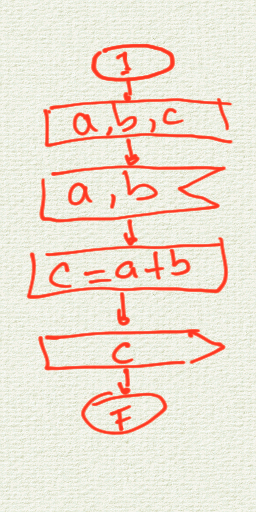 I
a, b, c
a, b
c = a + b
c
F